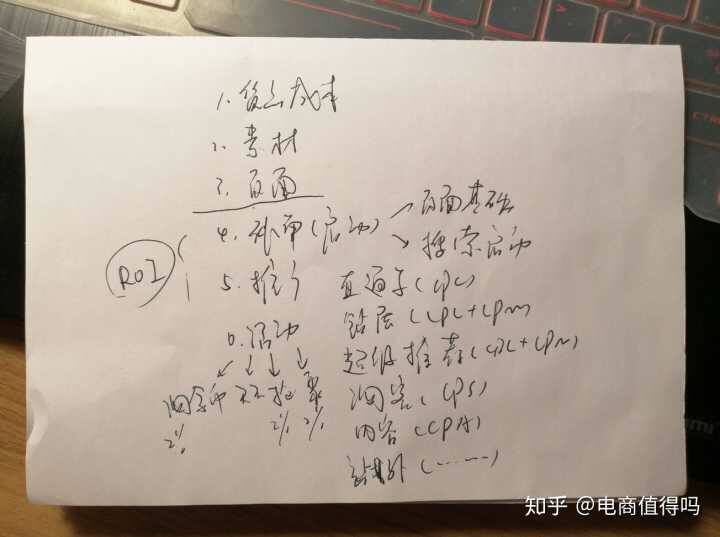 1. 货品成本
2. 素材
3. 页面
4. 补单(启动) 页面基础
搜索启动
ROI
5. 推广 直通车(CPC)
钻展(CPC+CPM)
6. 活动 超级推荐(CPC+CPM)
淘宝客(CPS)
2% 2% 2%
内容(CPA)
站外(……)
CTRL
知乎 @电商值得吗